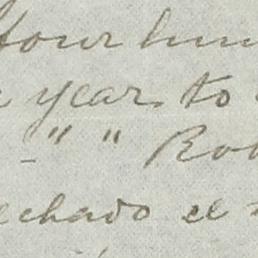 four hun
year to
" " Rob
echado el